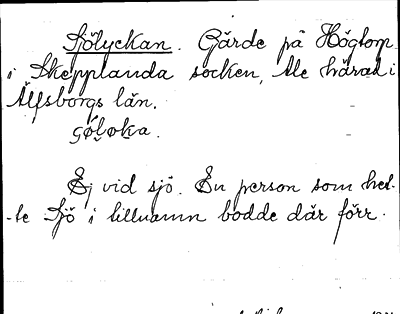 Sjölyckan. Gärde på Högtorp
i Skepplanda socken, Ale härad i
Älfsborgs län.
Ej vid sjö. En person som het-
-te Sjö i tillnamn bodde där förr.